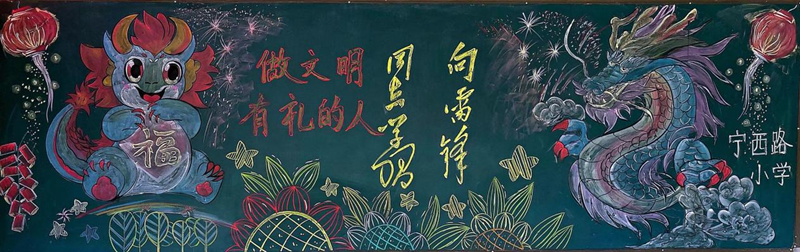 福
做文明
有礼的人
向雷锋
同志学习
宁西路
小学